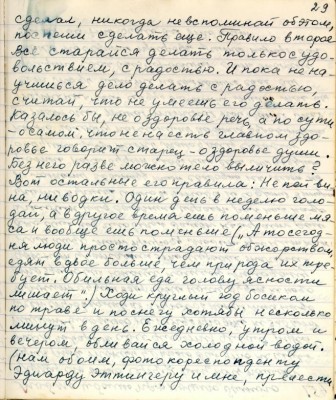 29
сделал, никогда не вспоминай об этом,
поспеши сделать еще. Правило второе
все старайся делать только с удо-
вольствием, с радостью. И пока не на-
учишься дело делать с радостью,
считай, что не умеешь его делать.
Казалось бы, не о здоровье речь, а по сути
- о самом, что ни на есть главном здо-
ровье говорит старец - о здоровье души.
Без него разве можно тело вылечить?
Вот остальные его правила: Не пей ви-
на, ни водки. Один день в неделю голо-
дай, а в другое время ешь поменьше мя-
са и вообще ешь поменьше („А то сегод-
ня люди просто страдают обжорством,
едят вдвое больше, чем природа их тре-
бует. Обильная еда голову ясности
лишает".) Ходи круглый год босиком
по траве и по снегу хотя бы несколько
минут в день. Ежедневно, утром и
вечером, обливайся холодной водой.
(нам обоим, фотокореспонденту
Эдуарду Эттингеру и мне, привести